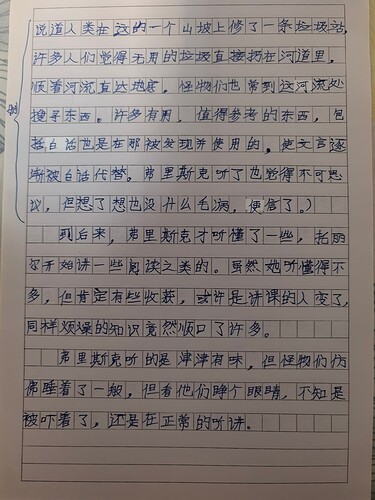 说道人类在远的一个山坡上修了一条垃圾站,
许多人们觉得无用的垃圾直接扔在河道里,
顺着河流直达地底。怪物们也常到这河流处
搜寻东西。许多有用,值得参考的东西,包
括白话也是在那被发现并使用的,使文言逐
渐被白话代替。弗里斯克听了也觉得不可思
议,但想了想也没什么毛病,便信了。)
到后来,弗里斯克才听懂了一些,托丽
尔开始讲一些阅读之类的。虽然她听懂得不
多,但肯定有些收获,或许是讲课的人变了,
同样烦躁的知识竟然顺口了许多。
弗里斯克听的是津津有味,但怪物们仿
佛睡着了一般,但看他们睁个眼睛,不知是
被吓着了,还是在正常的听讲。